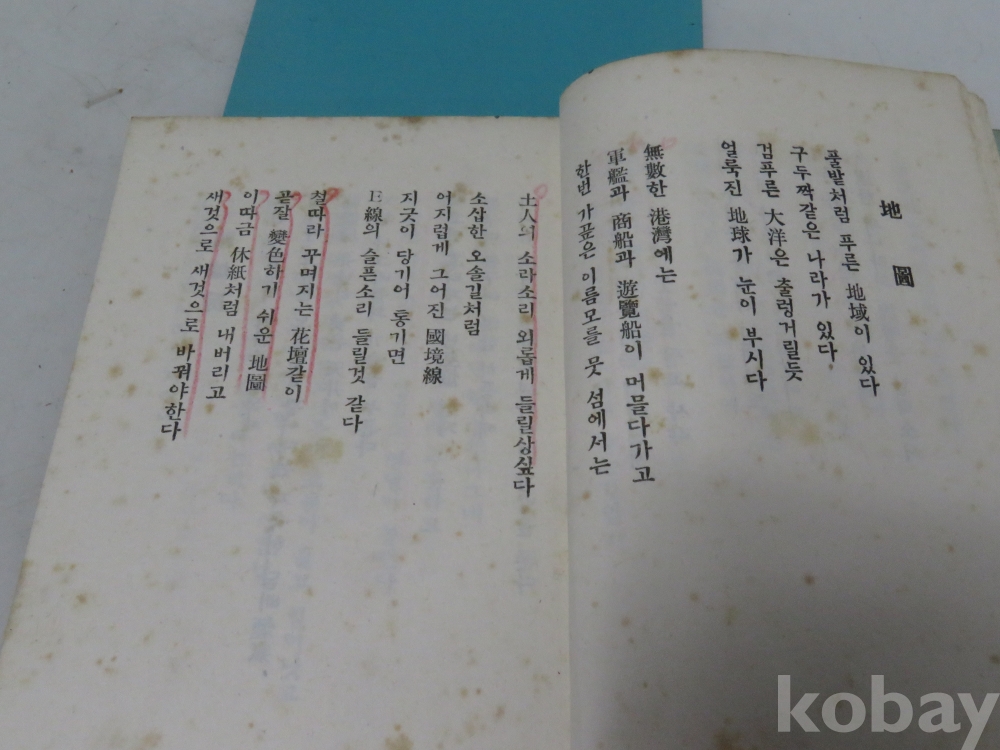 地圖
풀밭처럼 푸른 地域이 있다
구두짝같은 나라가 있다
검푸른 大洋은 출렁거릴듯
얼룩진 地球가 눈이 부시다
無數한 港灣에는
軍艦과 商船과 遊覽船이 머믈다가고
한번 가끔은 이름모를 뭇 섬에서는
土人의 소라소리 외롭게 들릴상싶다
소삽한 오솔길처럼
어지럽게 그어진 國境線
지긋이 당기어 퉁기면
E線의 슬픈소리 들릴것 같다
철따라 꾸며지는 花壇같이
곧잘 變色하기 쉬운 地圖
이따금 休紙처럼 내버리고
새것으로 새것으로 바꿔야한다
kobay